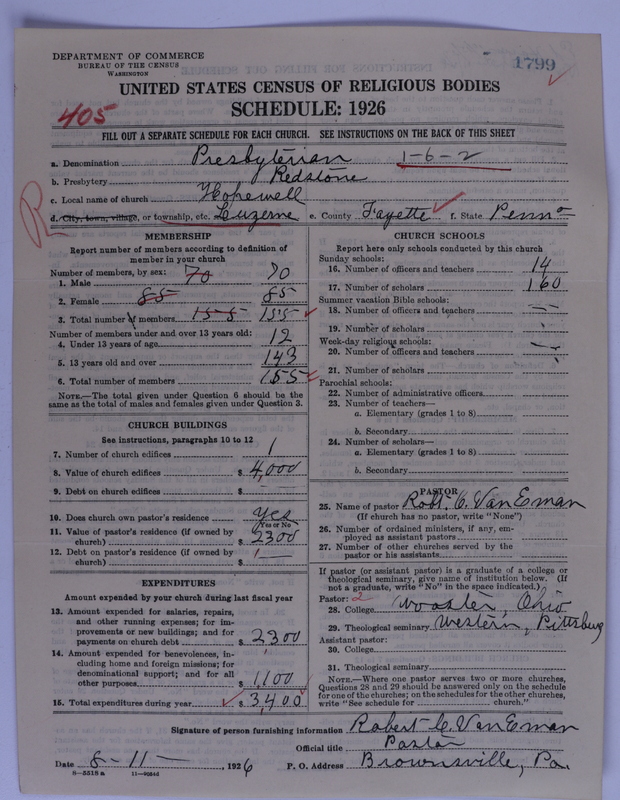 DEPARTMENT OF COMMERCE
BUREAU OF THE CENSUS
WASHINGTON
1799
UNITED STATES CENSUS OF RELIGIOUS BODIES
SCHEDULE: 1926
405
FILL OUT A SEPARATE SCHEDULE FOR EACH CHURCH. SEE INSTRUCTIONS ON THE BACK OF THIS SHEET
a. Denomination Presbyterian 1-6-2
b. Presbytery Redstone
c. Local name of church Hopewell
R
d. City, town, village, or township, etc. Luzerne e. County Fayette f. State Penna
MEMBERSHIP
Report number of members according to definition of
member in your church
Number of members, by sex:
1. Male 70 70
2. Female 85 85
3. Total number of members 155 155
Number of members under and over 13 years old:
4. Under 13 years of age 12
5. 13 years old and over 143
6. Total number of members 155
NOTE.—The total given under Question 6 should be
same as the total of males and females given under Question 3.
CHURCH BUILDINGS
See instructions, paragraphs 10 to 12
7. Number of church edifices 1
8. Value of church edifices $ 4,000
9. Debt on church edifices $
10. Does church own pastor's residence yes
Yes or No
11. Value of pastor's residence (if owned by
church) $ 2300
12. Debt on pastor's residence (if owned by
church) $ —
EXPENDITURES
Amount expended by your church during last fiscal year
13. Amount expended for salaries, repairs,
and other running expenses; for im-
provements or new buildings; and for
payments on church debt $ 2300
14. Amount expended for benevolences, in-
cluding home and foreign missions; for
denominational support; and for all
other purposes $ 1,100
15. Total expenditures during year $ 3,400
CHURCH SCHOOLS
Report here only schools conducted by this church
Sunday schools:
16. Number of officers and teachers 14
17. Number of scholars 160
Summer vacation Bible schools:
18. Number of officers and teachers —
19. Number of scholars
Week-day religious schools:
20. Number of officers and teachers
21. Number of scholars
Parochial schools:
22. Number of administrative officers
23. Number of teachers—
a. Elementary (grades 1 to 8)
b. Secondary
24. Number of scholars—
a. Elementary (grades 1 to 8)
b. Secondary
PASTOR
25. Name of pastor Robt. C. VanEman
(If church has no pastor, write "None")
26. Number of ordained ministers, if any, em-
ployed as assistant pastors
27. Number of other churches served by the
pastor or his assistants
If pastor (or assistant pastor) is a graduate of a college or
theological seminary, give name of institution below. (If
not a graduate, write "No" in the space indicated.)
Pastor: 2
28. College Wooster, Ohio
29. Theological seminary Western, Pittsburg
Assistant pastor:
30. College
31. Theological seminary
NOTE.—Where one pastor serves two or more churches,
Questions 28 and 29 should be answered only on the schedule
for one of the churches; on the schedules for the other churches,
write "See schedule for church."
Signature of person furnishing information Robert C. VanEman
Official title Pastor
Date 8-11-, 1926 P. O. Address Brownsville, Pa.
8—5518 a 11—9024d